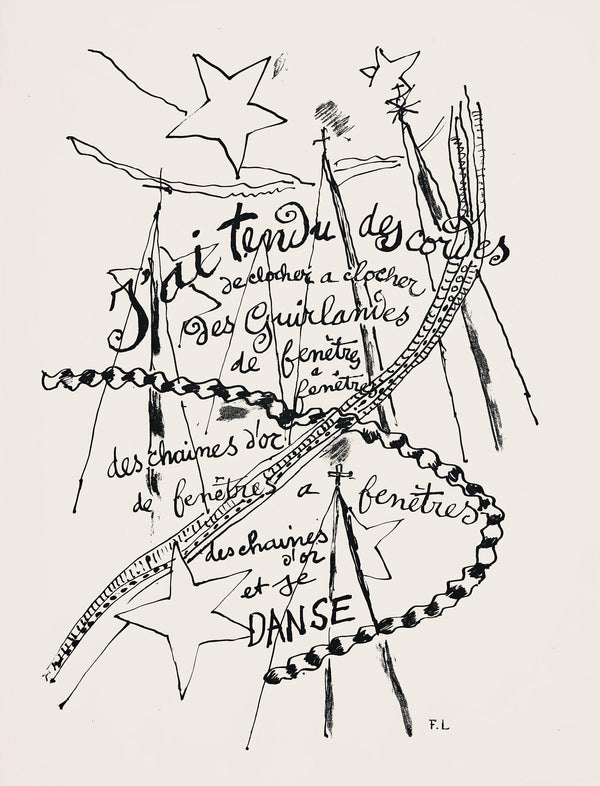 J'ai tendu des cordes
de clocher a clocher
des Guirlandes
de fenêtres
a
fenêtres
des chaines d'or
de fenêtres a fenêtres
des chaines
d'or
et je
DANSE
F.L